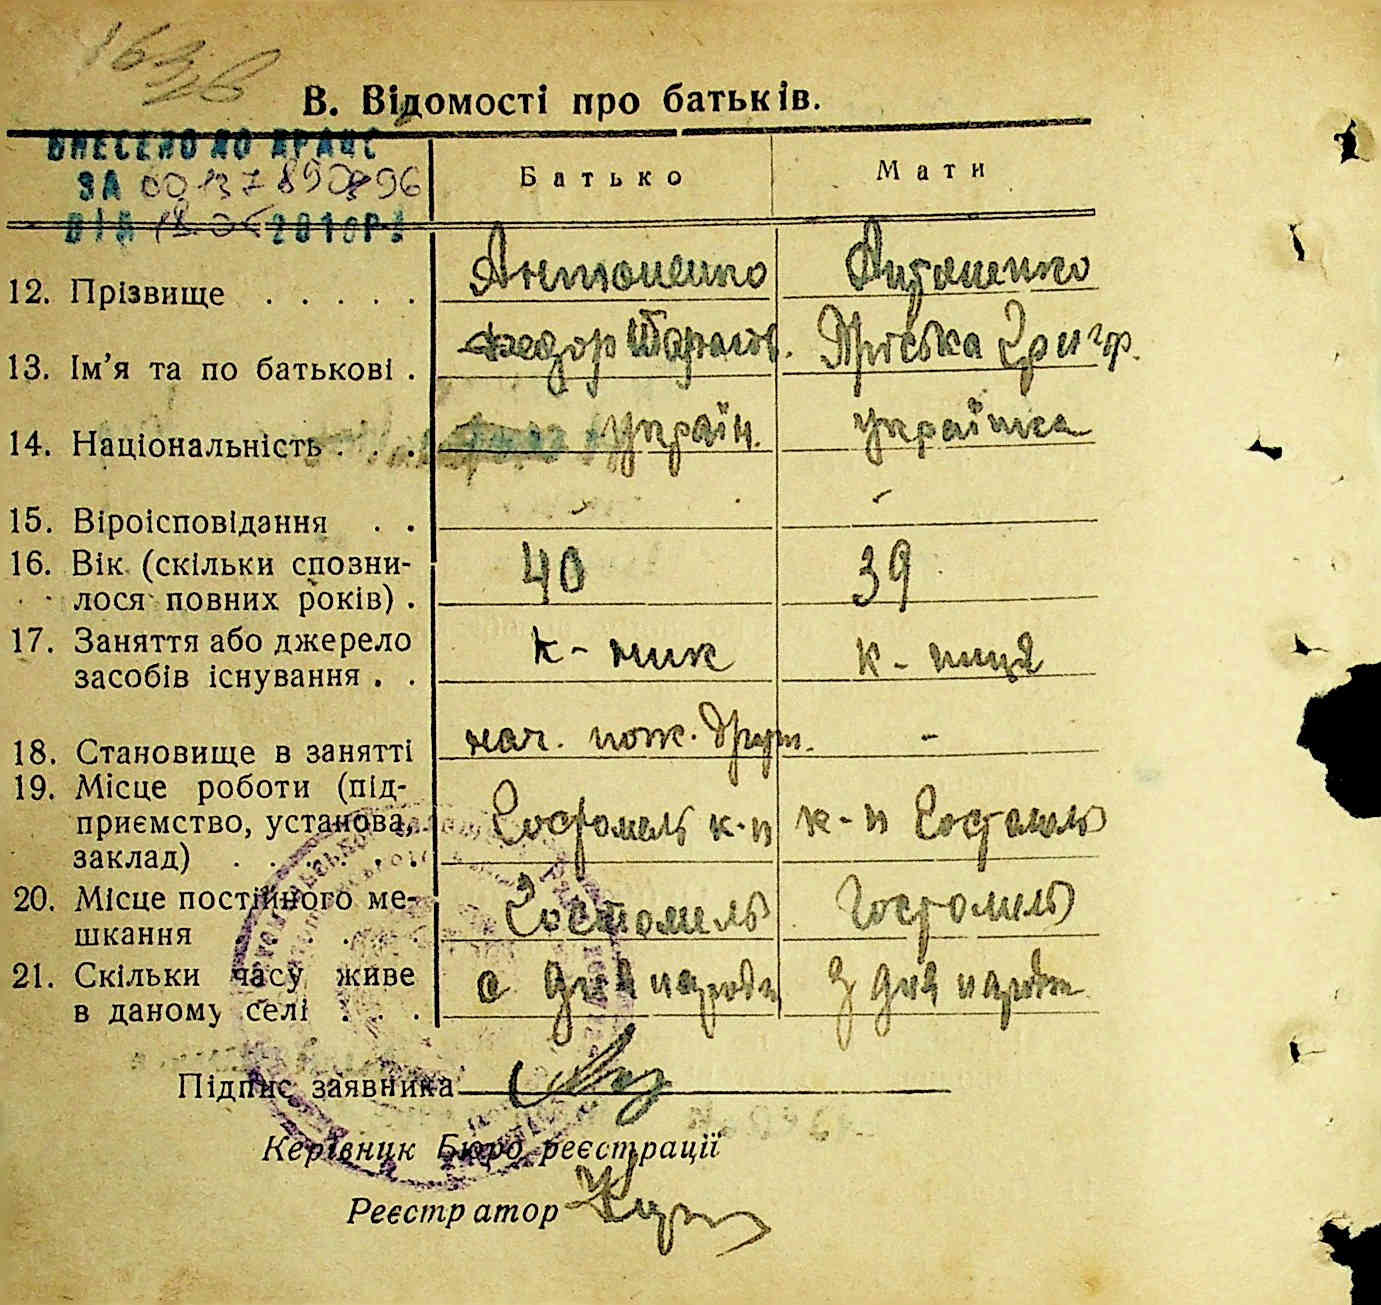 В. Відомості про батьків.
ВНЕСЕНО ДО ДРАЦС
ЗА 00137890896
ВІД 2010Р.
Батько Мати
12. Прізвище . . . . . Антоненко Антоненко
13. Ім’я та по батькові . Федор Тарасов. Пріська Григор.
14. Національність . . . Україн. українка
15. Віроісповідання . . - -
16. Вік (скільки сповни-
лося повних років) . 40 39
17. Заняття або джерело
засобів існування . . к-ник к-ниця
18. Становище в занятті нач. пож. друж. -
19. Місце роботи (під-
приємство, установа,
заклад) . . . . . . Гостомель к-п к-п Гостомель
20. Місце постійного ме-
шкання . . . . Гостомель Гостомель
21. Скільки часу живе
в даному селі . . . с дня народж з дня народж
Підпис заявника
Керівник Бюро реєстрації
Реєстратор